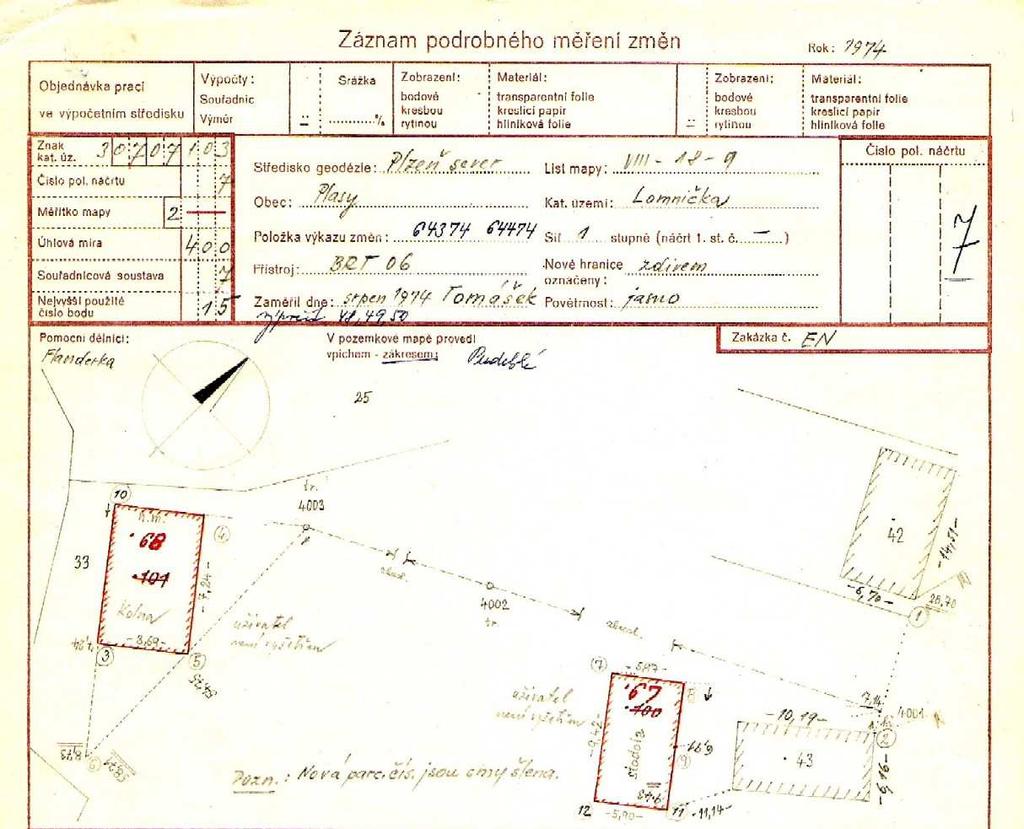 Záznam podrobného měření změn
Rok: 1974
Objednávka prací
ve výpočetním středisku
Výpočty:
Souřadnic
Výměr
Srážka
%
Zobrazení:
bodové
kresbou
rytinou
Materiál:
transparentní folie
kreslicí papír
hliníková folie
Zobrazení:
bodové
kresbou
rytinou
Materiál:
transparentní folie
kreslicí papír
hliníková folie
Znak
kat. úz. 30707103
Číslo pol. náčrtu 7
Měřítko mapy 2 —
Úhlová míra 400
Souřadnicová soustava 7
Nejvyšší použité
číslo bodu 15
Středisko geodézie: Plzeň sever
Obec: Plasy
Položka výkazu změn: 64374 64474
Přístroj: BRT 06
Zaměřil dne: srpen 1974 Tomášek
48,49,50
List mapy: VIII - 18 - 9
Kat. území: Lomnička
Síť 1 stupně (náčrt 1. st. č. — )
Nové hranice zdivem
označeny:
Povětrnost: jasno
Číslo pol. náčrtu
7
Zakázka č. EN
Pomocní dělníci:
Flanderka
V pozemkové mapě provedl
vpichem - zákresem:
25
10
tr.
4003
4
68
101
33
Kolna
-7,24-
-3,69-
3
5
uživatel
není vyšetřen
4002
tr.
42
-14,51-
-6,70-
20,70
1
7
-5,87-
8
67
100
stodola
-9,42-
uživatel
není vyšetřen
9
12
-5,90-
11
-11,14-
-10,19-
43
7,14
4001
2
-6,16-
8,73
Pozn.: Nová parc. čís. jsou smyšlena.